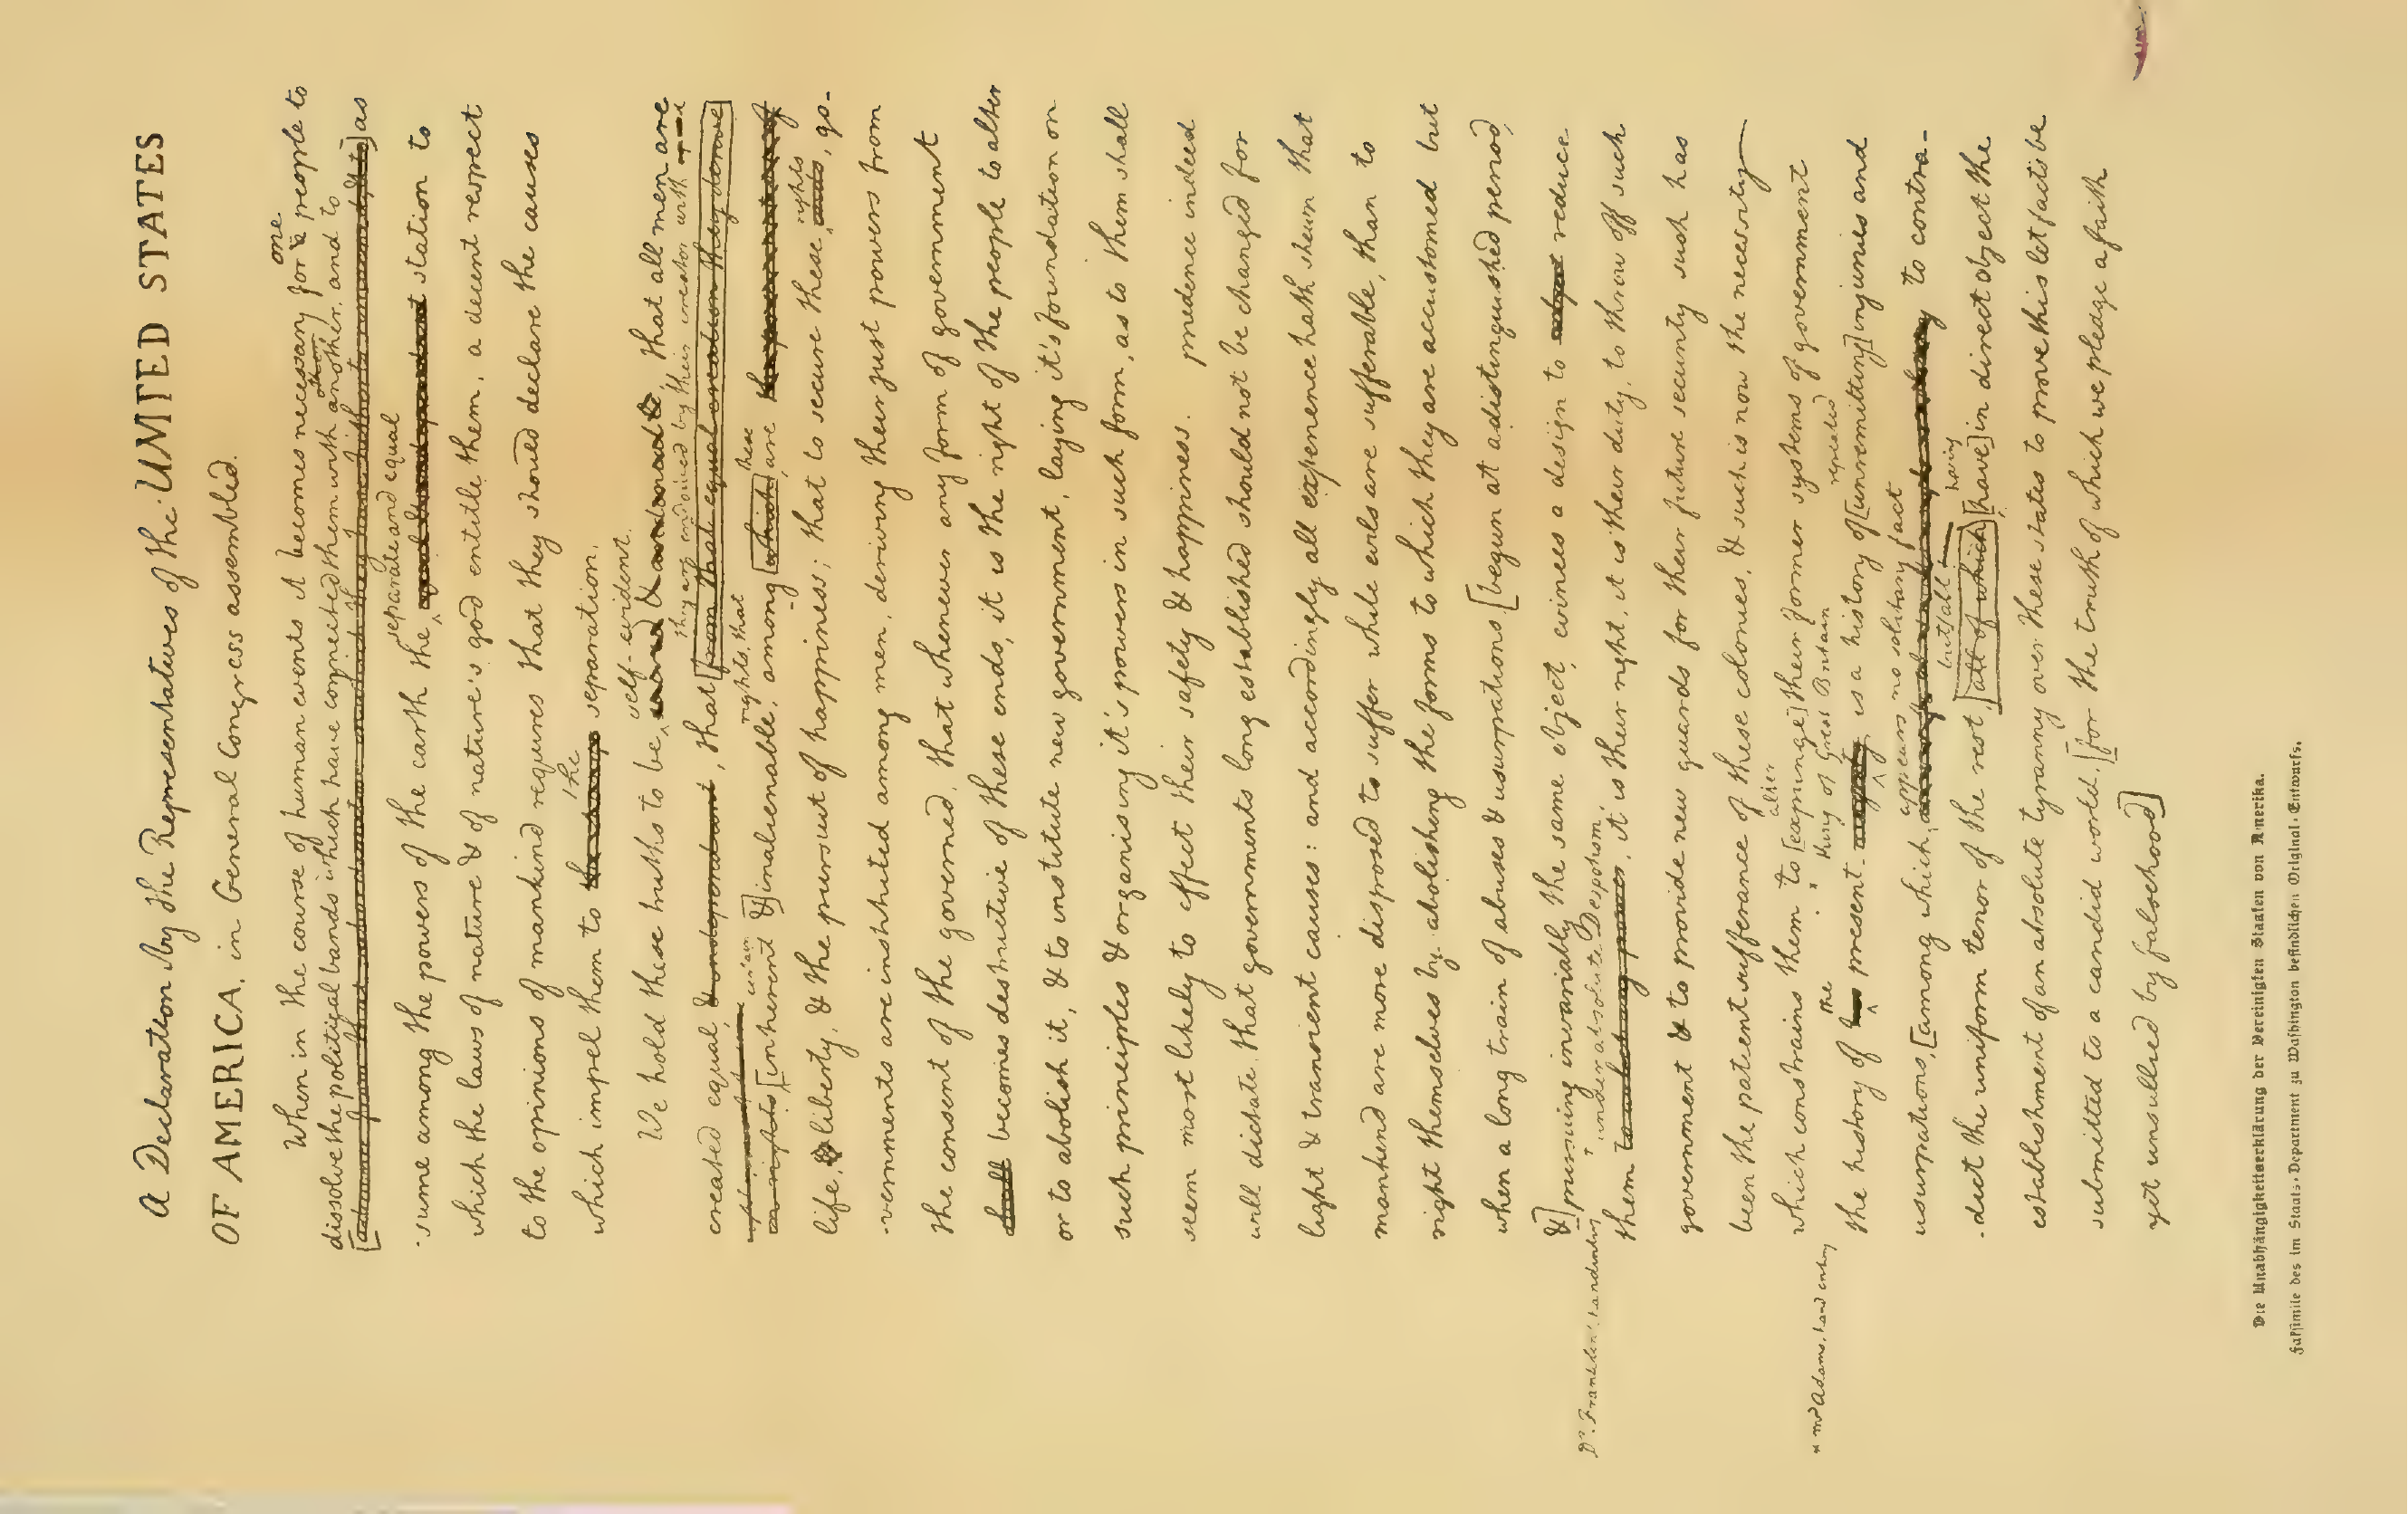 A Declaration by the Representatives of the UNITED STATES
OF AMERICA, in General Congress assembled.
one
When in the course of human events it becomes necessary for a people to
dissolve the political bands which have connected them with another, and to
[advance from that subordination in which they have hitherto remained, & to] as
separate and equal
-sume among the powers of the earth the equal & independant station to
which the laws of nature & of nature's god entitle them, a decent respect
to the opinions of mankind requires that they should declare the causes
the
which impel them to the change separation.
self-evident.
We hold these truths to be sacred & undeniable, that all men are
they are endowed by their creator with
created equal & independant, that [from that equal creation they derive
rights, that these
in rights [inherent &] inalienable, among [which] are the preservation of
rights
life, & liberty, & the pursuit of happiness; that to secure these ends, go-
-vernments are instituted among men, deriving their just powers from
the consent of the governed, that whenever any form of government
shall becomes destructive of these ends, it is the right of the people to alter
or to abolish it, & to institute new government, laying it's foundation on
such principles & organising it's powers in such form, as to them shall
seem most likely to effect their safety & happiness. prudence indeed
will dictate that governments long established should not be changed for
light & transient causes: and accordingly all experience hath shewn that
mankind are more disposed to suffer while evils are sufferable, than to
right themselves by abolishing the forms to which they are accustomed but
when a long train of abuses & usurpations [begun at a distinguished period,
&] pursuing invariably the same object, evinces a design to subject reduce
Dr. Franklin's handwriting * under absolute Despotism,
them to arbitrary power, it is their right, it is their duty, to throw off such
government & to provide new guards for their future security such has
been the patient sufferance of these colonies, & such is now the necessity
alter
which constrains them to [expunge] their former systems of government
* Mr Adams' handwriting the * King of Great Britain repeated
the history of his present majesty is a history of [unremitting] injuries and
appears no solitary fact
usurpations, [among which, to contra-
but all having
-dict the uniform tenor of the rest, [all of which] [have] in direct object the
establishment of an absolute tyranny over these states to prove this let facts be
submitted to a candid world, [for the truth of which we pledge a faith
yet unsullied by falsehood]
Die Unabhängigkeitserklärung der Vereinigten Staaten von Amerika.
Faksimile des im Staats-Department zu Washington befindlichen Original-Entwurfs.